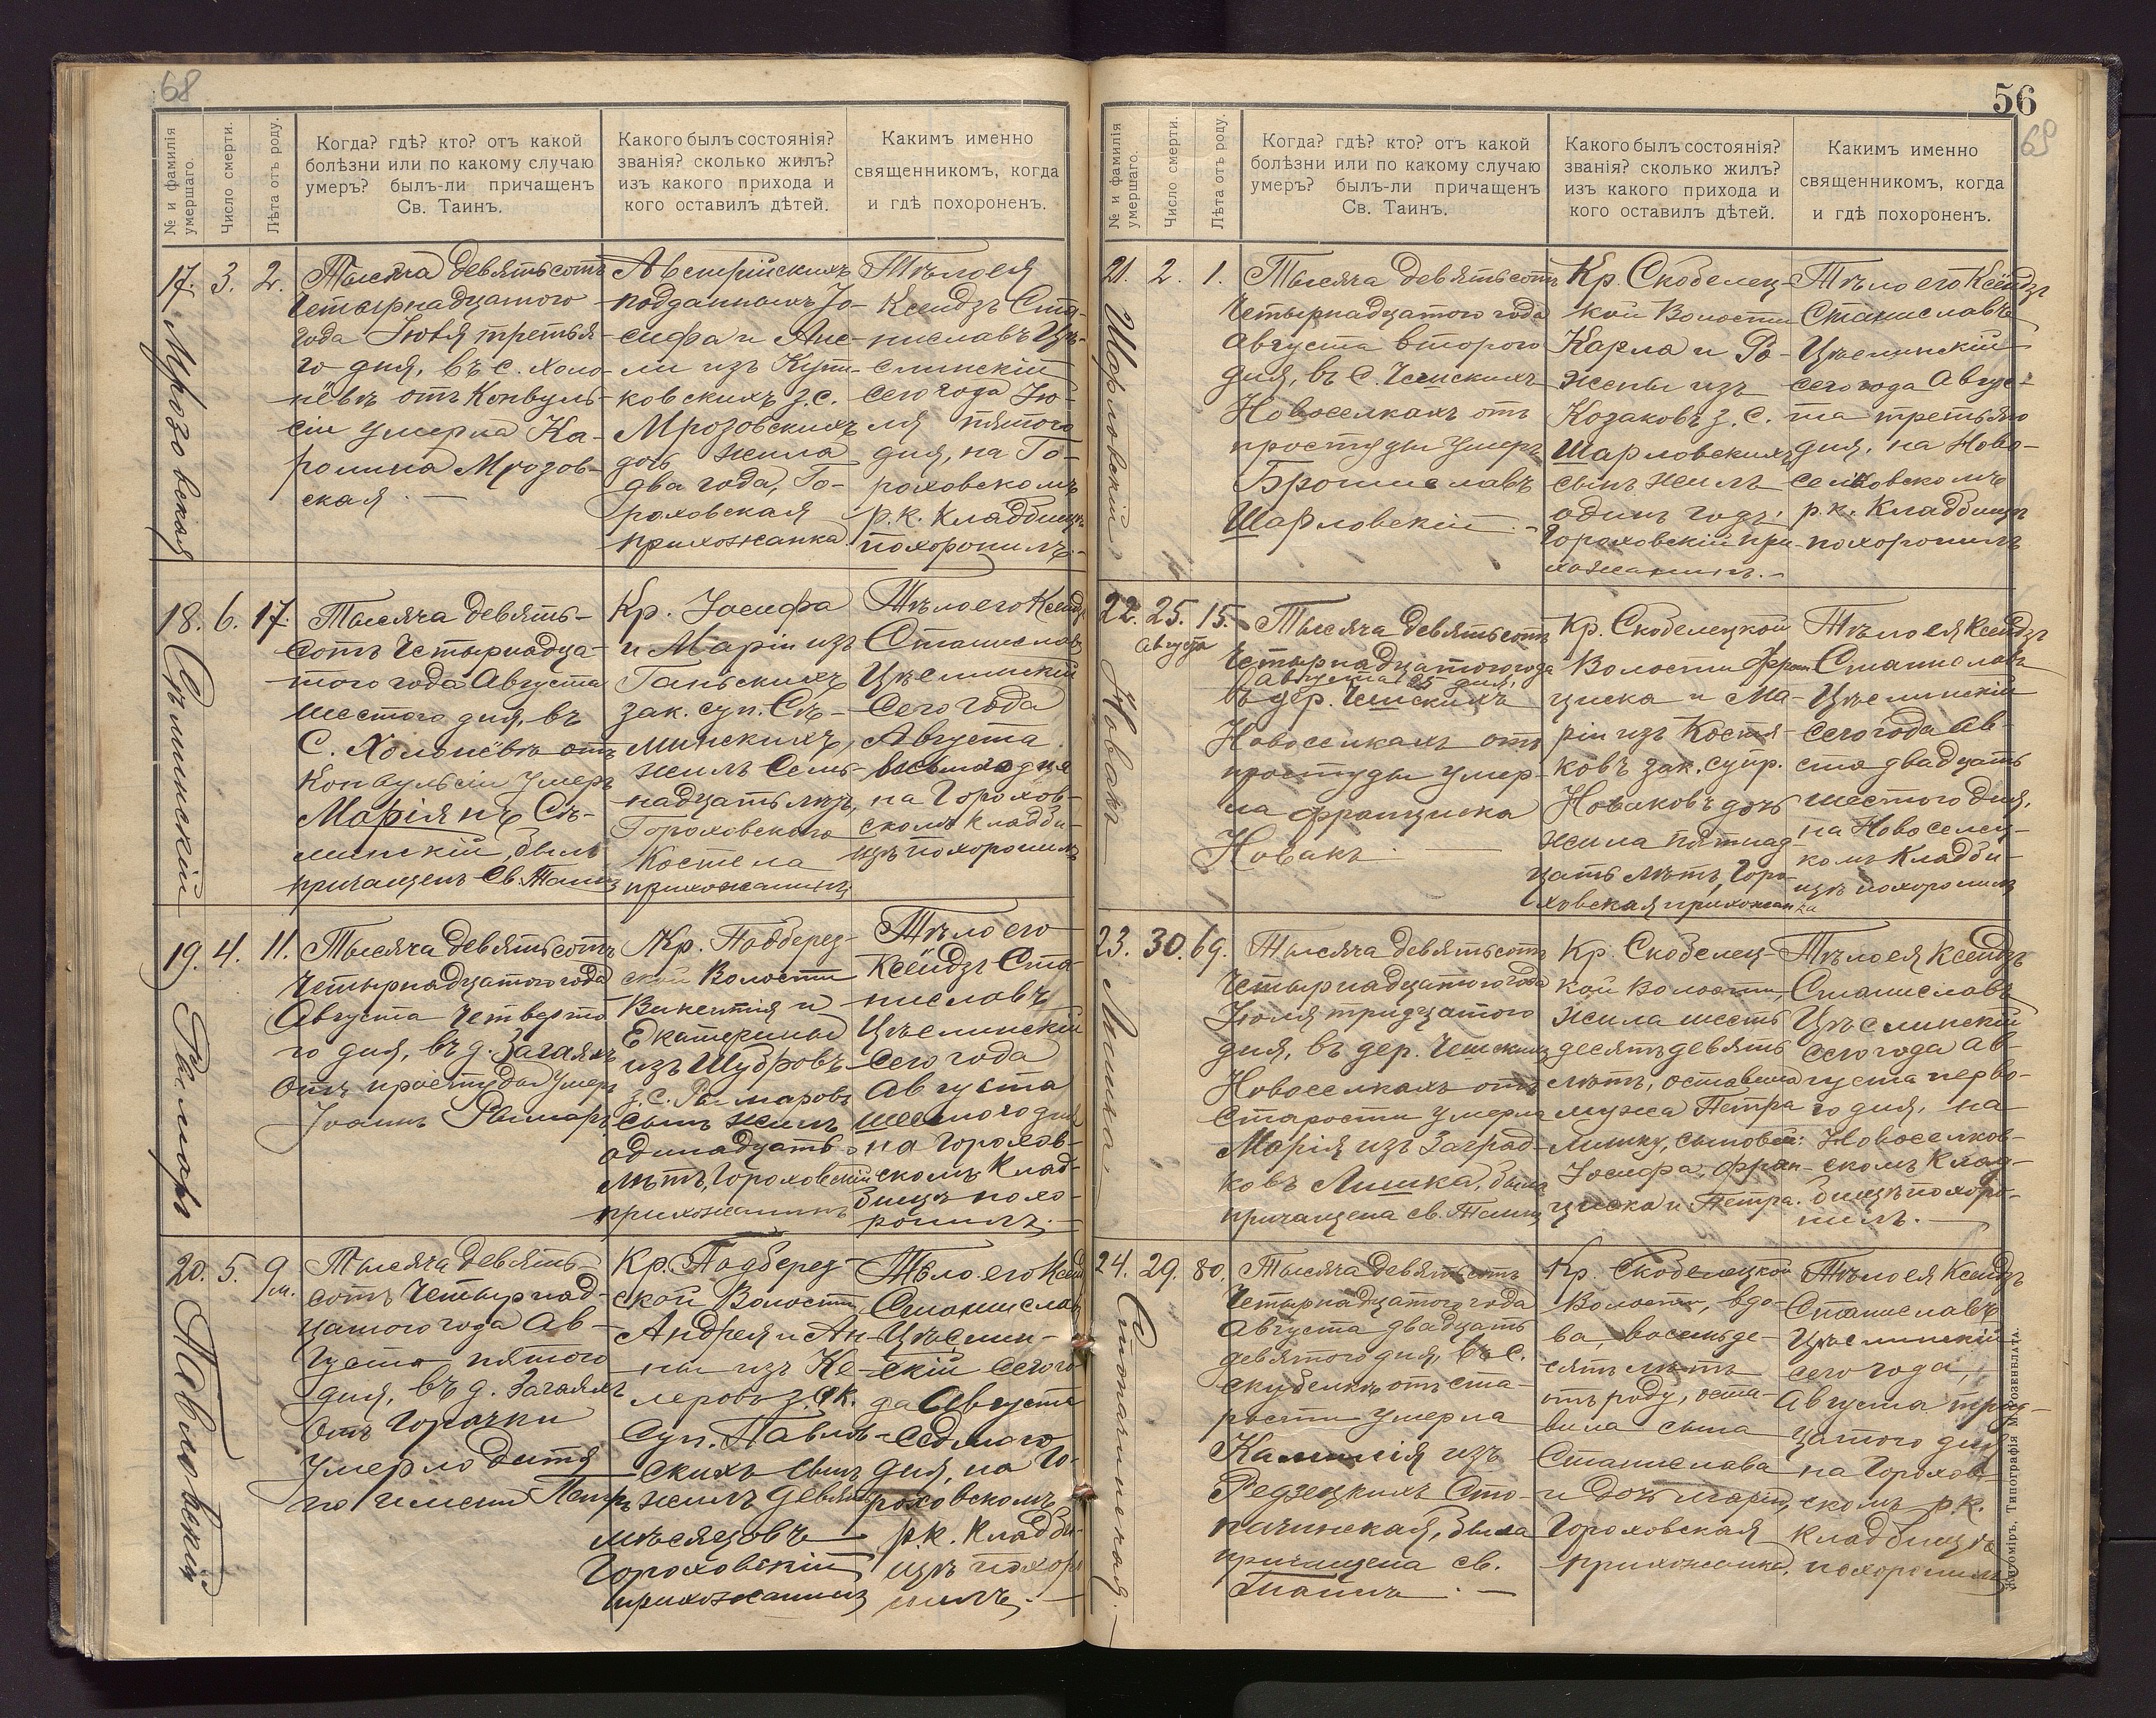 68
№ и фамилія умершаго.
Число смерти.
Лѣта отъ роду.
Когда? гдѣ? кто? отъ какой
болѣзни или по какому случаю
умеръ? былъ-ли причащенъ
Св. Таинъ.
Какого былъ состоянія?
званія? сколько жилъ?
изъ какого прихода и
кого оставилъ дѣтей.
Какимъ именно
священникомъ, когда
и гдѣ похороненъ.
17. Мрозовская
3.
2.
Тысяча девятьсотъ
четырнадцатого
года Іюля третья-
го дня, въ с. Холо-
нёвѣ отъ Конвуль-
сіи умерла Ка-
ролина Мрозов-
ская. —
Австрійскихъ
подданныхъ Іо-
сифа и
ли изъ
ковскихъ з. с.
Мрозовскихъ
дочь жила
два года, Го-
роховская
прихожанка
Тѣло ея
Ксендзъ Ста-
ниславъ Цѣ-
слинскій
сего года Ію-
ля пятого
дня, на Го-
роховскомъ
р. к. Кладбищѣ
похоронилъ. —
18.
6.
17.
Тысяча девять-
сотъ четырнадца-
того года Августа
шестого дня, въ
с. Холонёвѣ отъ
Конвульсіи умеръ
Маріянъ Съ-
минскій, былъ
причащенъ Св. Таинъ
Кр. Іосифа
и Маріи изъ
Ганьскихъ
зак. суп. Сѣ-
минскихъ,
жилъ Семь-
надцать лѣтъ,
Гороховского
Костела
прихожанинъ.
Тѣло его Ксендзъ
Станиславъ
Цѣслинскій
Сего года
Августа
восьмого дня
на Горохов-
скомъ кладби-
щѣ похоронилъ
19. Рымаръ
4.
11.
Тысяча девятьсотъ
четырнадцатого года
Августа четверто-
го дня, въ д. Загаяхъ
отъ простуды умеръ
Іоаннъ Рымаръ.
Кр. Подберез-
ской Волости
Викентія и
Екатерины
изъ Шудровъ
з. с. Рымаровъ
сынъ жилъ
одинадцать
лѣтъ, Гороховскій
прихожанинъ
Тѣло его
Ксендзъ Ста-
ниславъ
Цѣслинскій
сего года
Августа
шестого дня
на Горохов-
скомъ Клад-
бищѣ похо-
ронилъ. —
20. Павловскій
5.
9 м.
Тысяча девять-
сотъ четырнад-
цатого года Ав-
густа пятого
дня, въ д. Загаяхъ
отъ Горячки
умерло дитя
по имени Петръ
Кр. Подберез-
ской Волости
Андрея и Ан-
ны изъ Ке-
леровъ зак.
Суп. Павлов-
скихъ сынъ
жилъ девять
мѣсяцовъ
Гороховскій
прихожанинъ
Тѣло его Ксендзъ
Станиславъ
Цѣслин-
скій сего го-
да Августа
седмого
дня, на Го-
роховскомъ
р. к. Кладби-
щѣ похоро-
нилъ. —
56
69
№ и фамилія умершаго.
Число смерти.
Лѣта отъ роду.
Когда? гдѣ? кто? отъ какой
болѣзни или по какому случаю
умеръ? былъ-ли причащенъ
Св. Таинъ.
Какого былъ состоянія?
званія? сколько жилъ?
изъ какого прихода и
кого оставилъ дѣтей.
Какимъ именно
священникомъ, когда
и гдѣ похороненъ.
21. Шарловскій
2.
1.
Тысяча девятьсотъ
четырнадцатого года
Августа второго
дня, въ С. Чешскихъ
Новоселкахъ отъ
простуды умеръ
Брониславъ
Шарловскій. —
Кр. Скобелец-
кой Волости
Карла и Ро-
жены изъ
Козаковъ з. с.
Шарловскихъ
сынъ жилъ
одинъ годъ.
Гороховскій при-
хожанинъ. —
Тѣло его Ксендзъ
Станиславъ
Цѣслинскій
сего года Авгус-
та третьяго
дня, на Ново-
селковскомъ
р. к. Кладбищѣ
похоронилъ
22. Новакъ
25.
Августа
15.
Тысяча девятьсотъ
четырнадцатого года
Августа 25 дня,
въ дер. Чешскихъ
Новоселкахъ отъ
простуды умер-
ла Франциска
Новакъ. —
Кр. Скобелецкой
Волости Фран-
циска и Ма-
ріи изъ Костя-
ковъ зак. супр.
Новаковъ дочь
жила пятнад-
цать лѣтъ, Горо-
ховская прихожанка
Тѣло ея Ксендзъ
Станиславъ
Цѣслинскій
сего года Ав-
ста двадцать
шестого дня,
на Новоселец-
комъ Кладби-
щѣ похоронилъ
23. Лишка
30.
69.
Тысяча девятьсотъ
четырнадцатого года
Іюля тридцатого
дня, въ дер. Чешскихъ
Новоселкахъ отъ
старости умерла
Марія изъ Заград-
ковъ Лишка, была
причащена св. Таинъ
Кр. Скобелец-
кой Волости,
жила шесть
десятъ девять
лѣтъ, оставила
мужа Петра
Лишку, сыновей:
Іосифа, Фран-
циска и Петра.
Тѣло ея Ксендзъ
Станиславъ
Цѣслинскій
сего года Ав-
густа перво-
го дня, на
Новоселков-
скомъ Клад-
бищѣ похоро-
нилъ. —
24.
29.
80.
Тысяча девятьсотъ
четырнадцатого года
Августа двадцать
девятого дня, въ с.
Скубелкѣ отъ ста-
рости умерла
изъ
Сто-
пачинская, была
причащена св.
Таинъ. —
Кр. Скобелецкой
Волости, вдо-
ва, восемьде-
сятъ лѣтъ
отъ роду, оста-
вила сына
Станислава
и дочь Марію,
Гороховская
прихожанка.
Тѣло ея Ксендзъ
Станиславъ
Цѣслинскій
сего года,
Августа трид-
цатого дня
на Горохов-
скомъ р. к.
кладбищѣ
похоронилъ
Житоміръ, Типографія М. Розенблата.